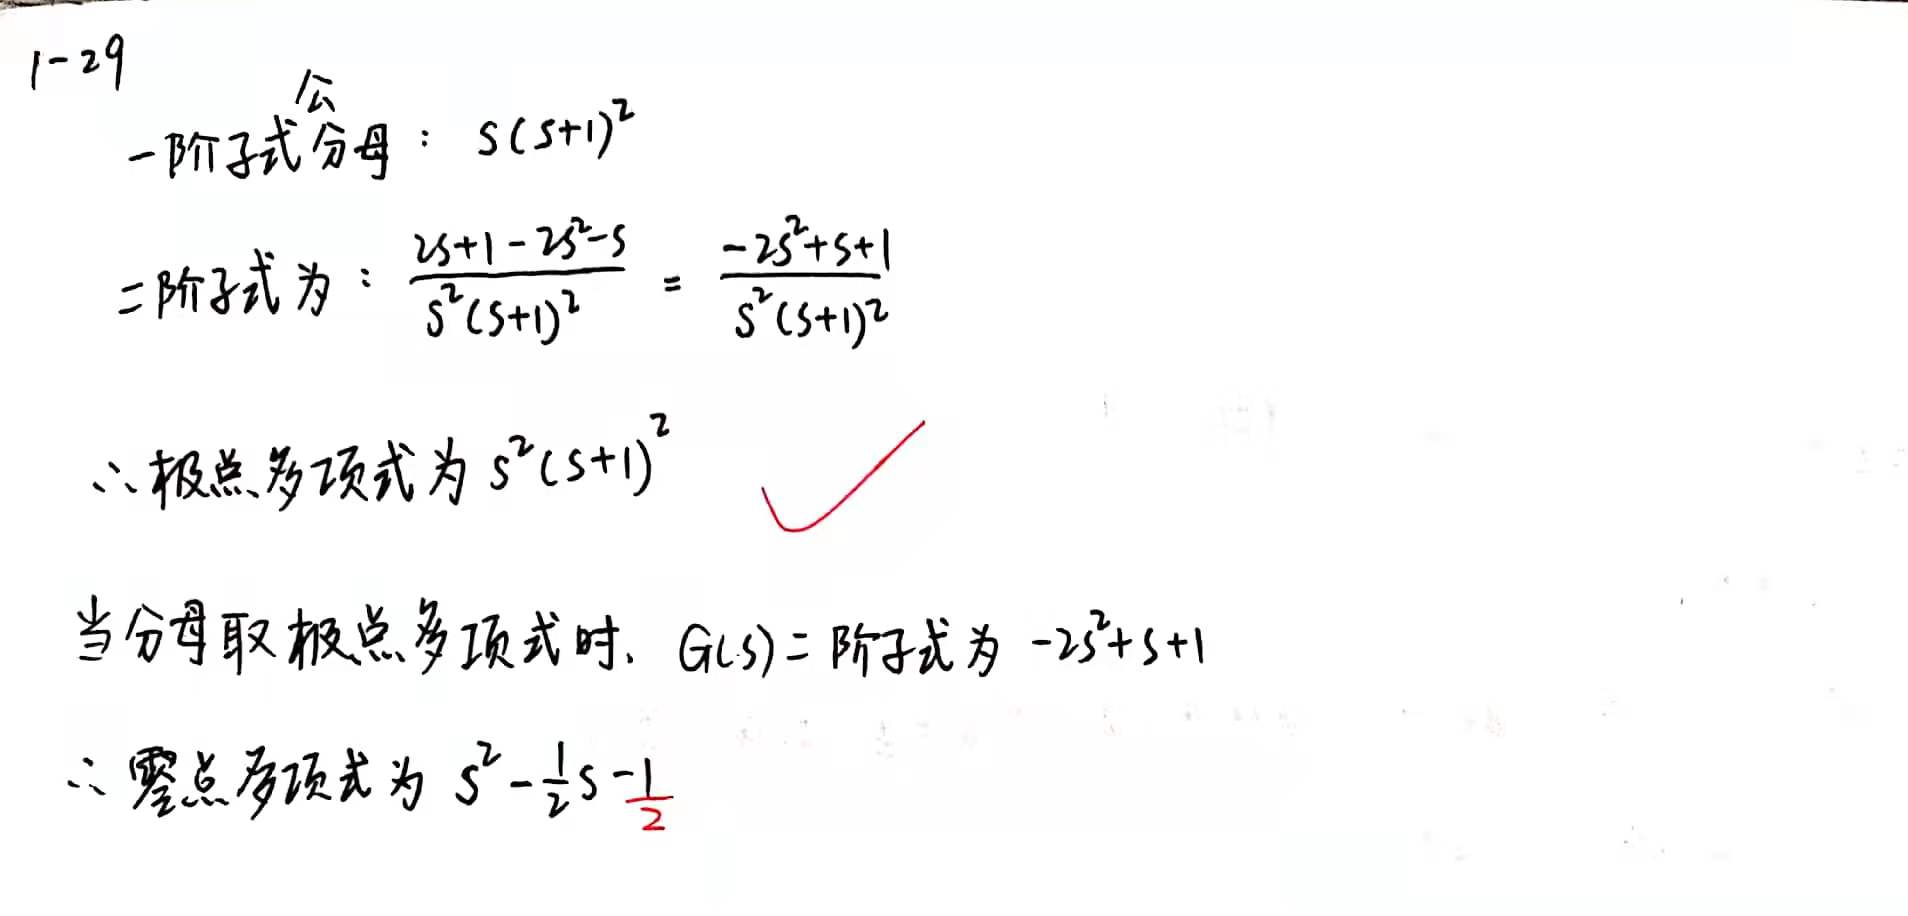 1-29
一阶子式公分母： s(s+1)²
二阶子式为： (2s+1-2s²-s)/(s²(s+1)²) = (-2s²+s+1)/(s²(s+1)²)
∴极点多项式为 s²(s+1)² ✓
当分母取极点多项式时、G(s)二阶子式为 -2s²+s+1
∴零点多项式为 s²-1/2s-1/2